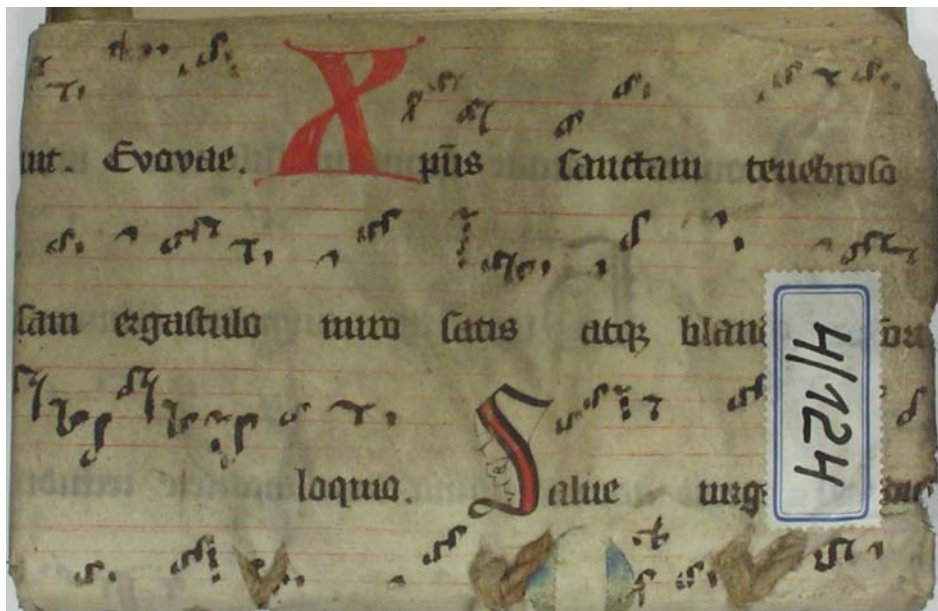 Evovae. Xpūs sanctam tenebroso
ergastulo miro satis atqꝫ
loquio. Salue
4/124